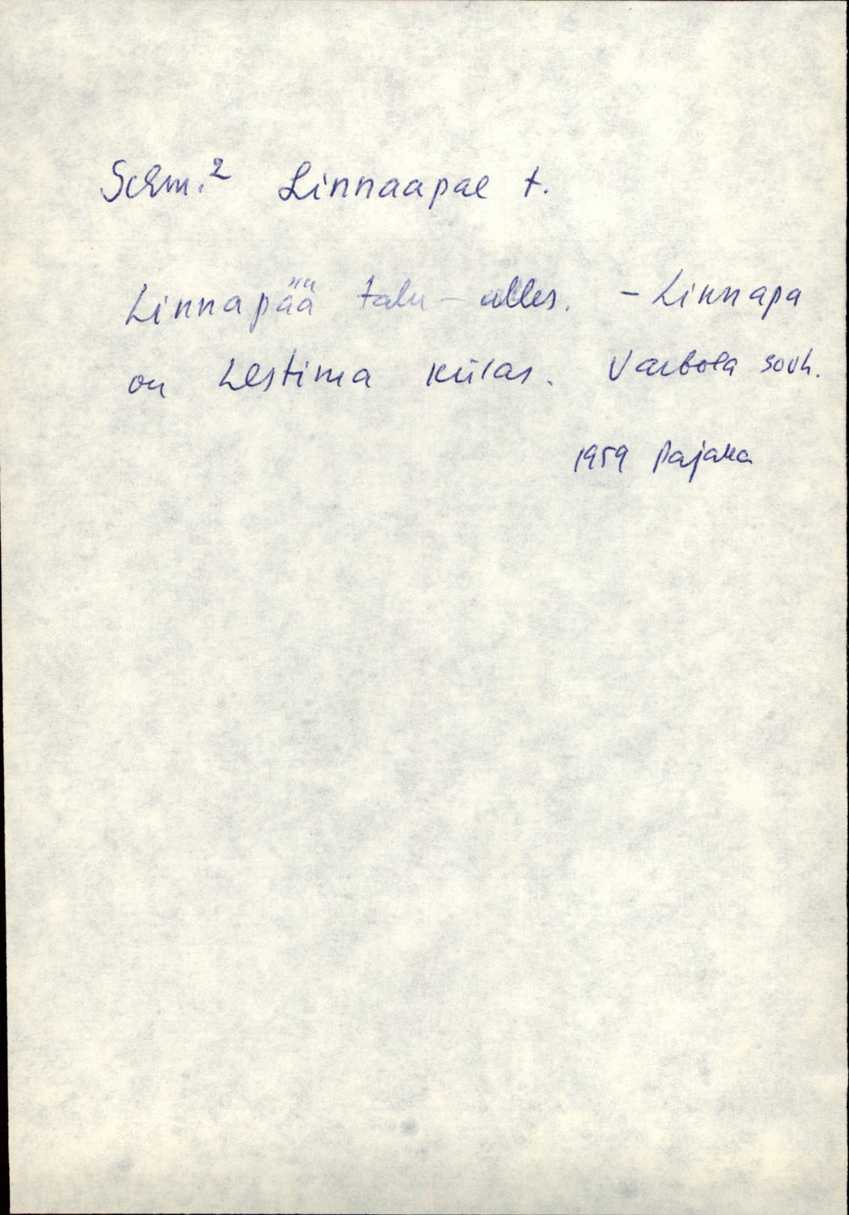 Schm.² Linnaapae t.
Linnapää talu – alles. – Linnapa
on Lestima külas. Varbola sovh.
1959 Pajaka